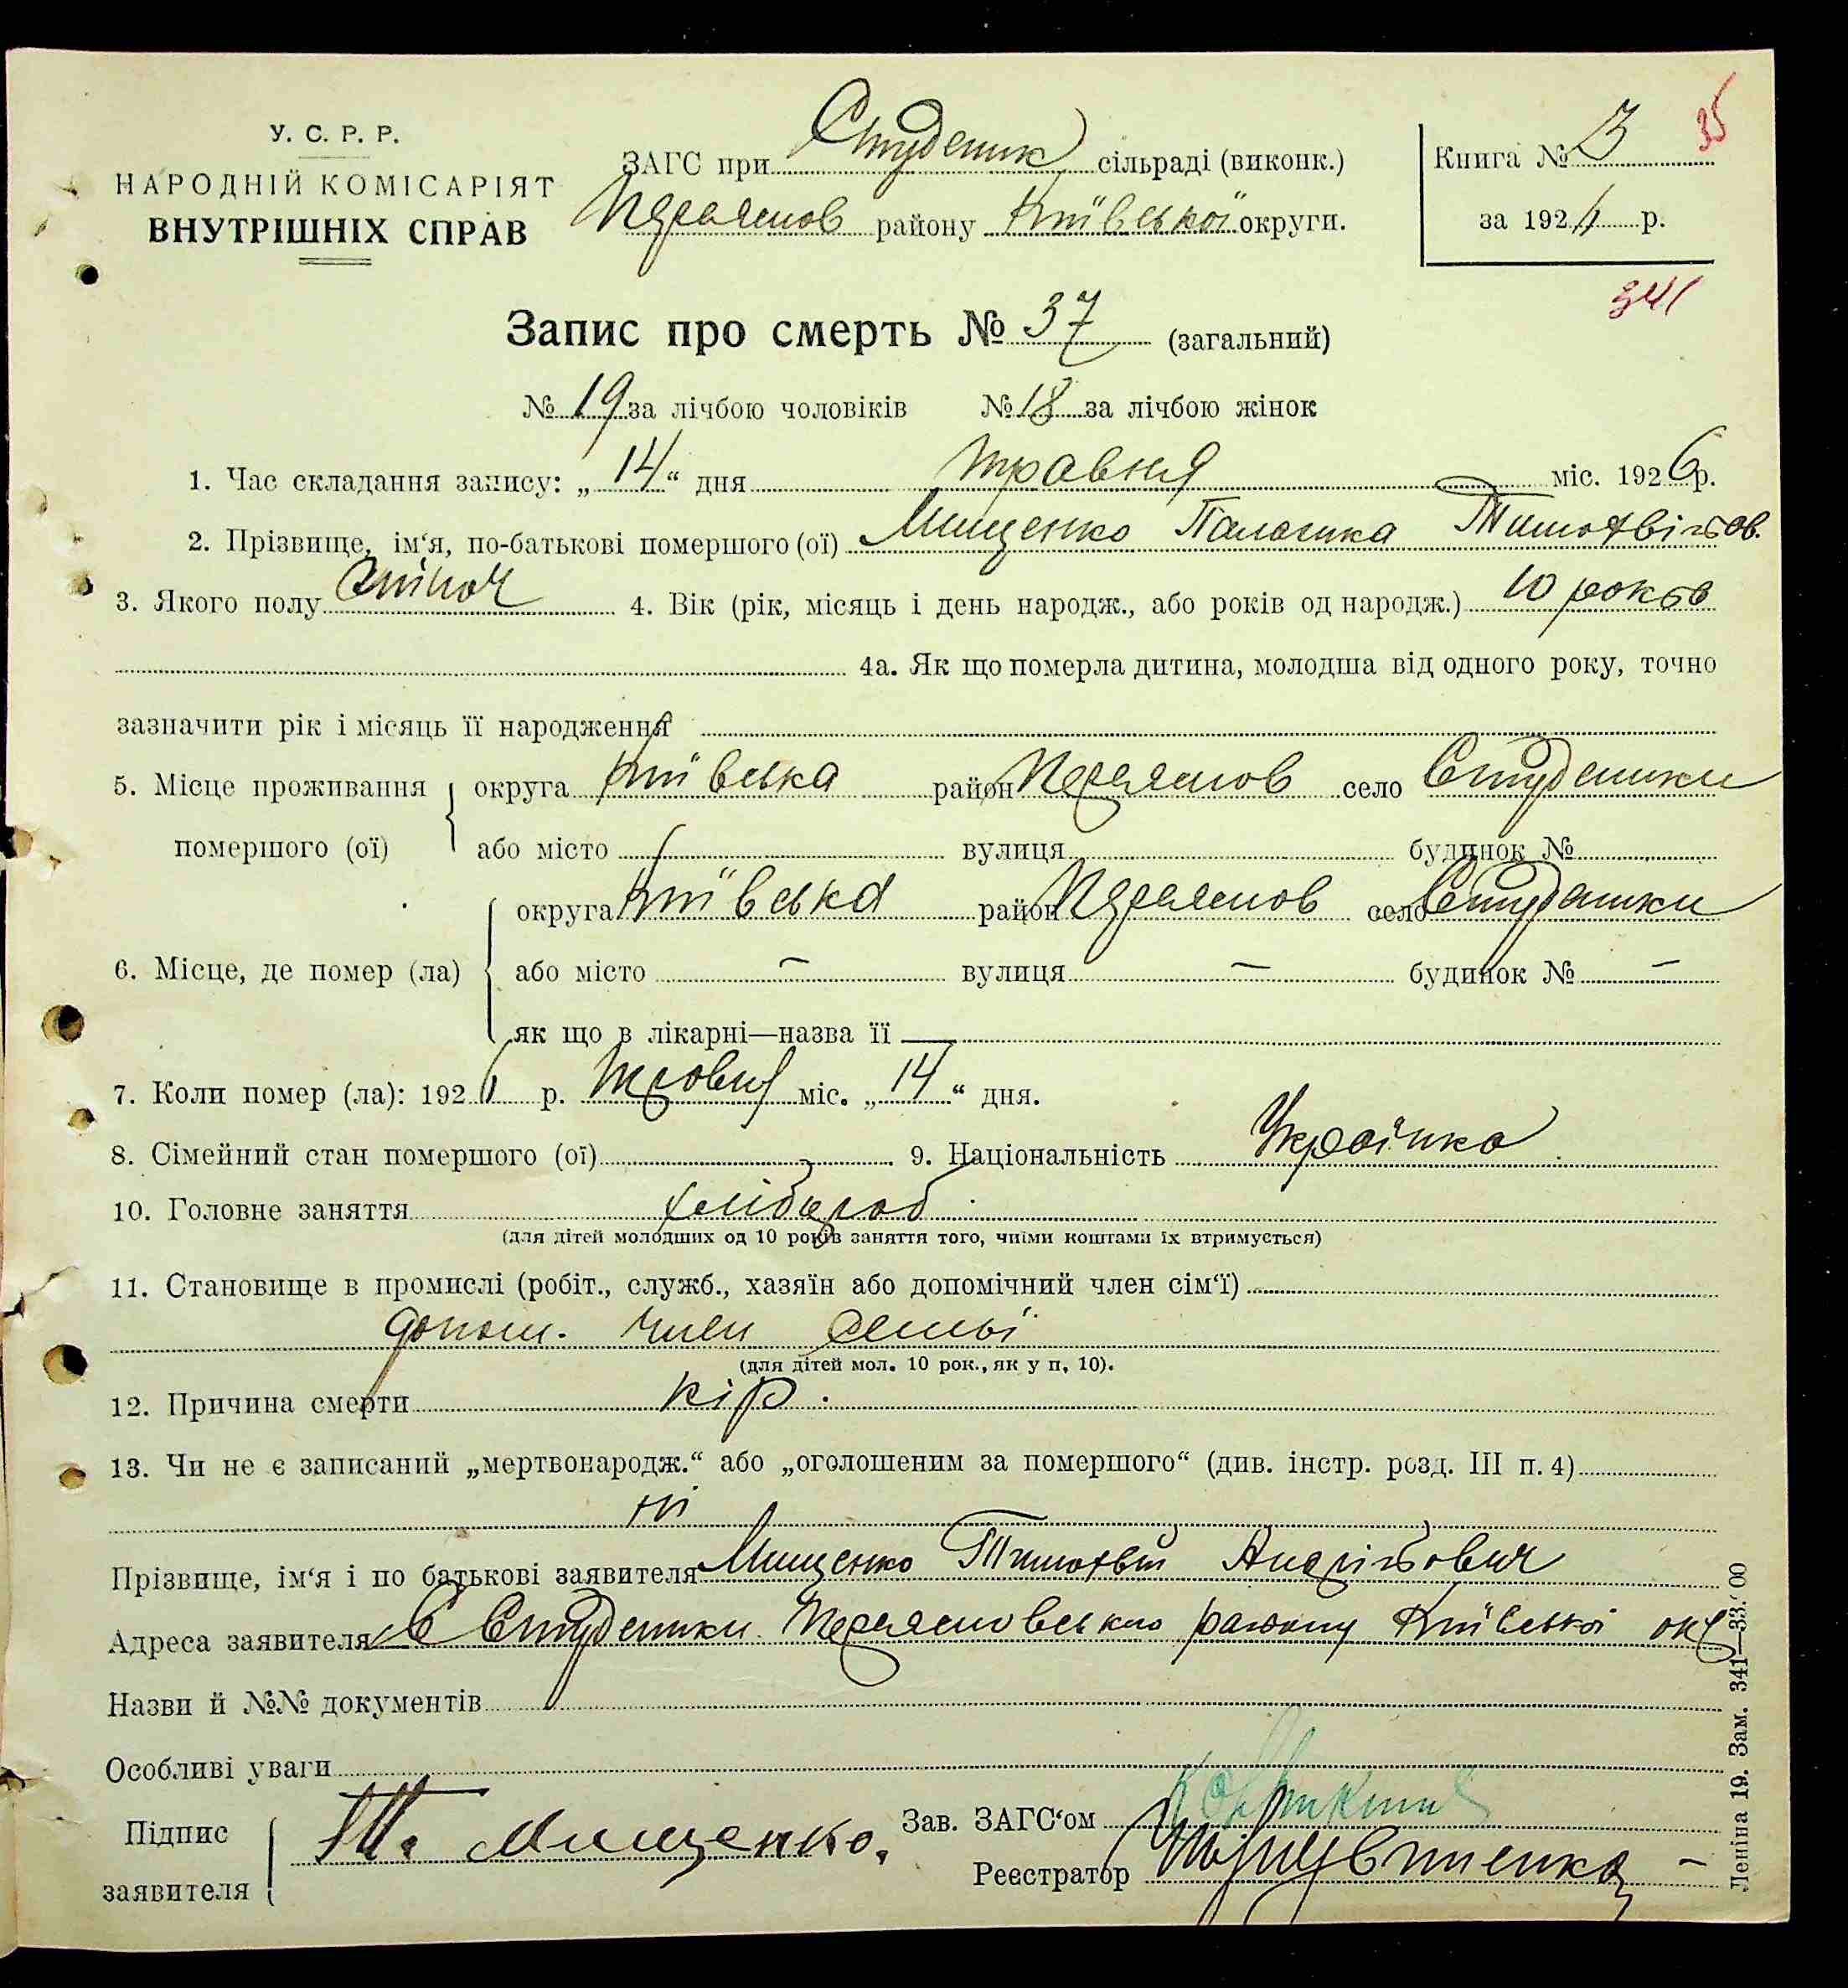 35
У. С. Р. Р.
НАРОДНІЙ КОМІСАРІЯТ
ВНУТРІШНІХ СПРАВ
ЗАГС при Студеник сільраді (виконк.)
Переяслов району Київської округи.
Книга № 3
за 1926 р.
341
Запис про смерть № 37 (загальний)
№ 19 за лічбою чоловіків № 18 за лічбою жінок
1. Час складання запису: „ 14 “ дня травня міс. 1926 р.
2. Прізвище, ім‘я, по-батькові помершого (ої) Мищенко Палажка Тимофвіївов.
3. Якого полу жіноч 4. Вік (рік, місяць і день народж., або років од народж.) 10 років
4а. Як що померла дитина, молодша від одного року, точно
зазначити рік і місяць її народження
5. Місце проживання помершого (ої) округа Київська район Переяслов село Студеники
або місто вулиця будинок №
6. Місце, де помер (ла) округа Київська район Переяслов село Студеники
або місто — вулиця — будинок № —
як що в лікарні—назва її —
7. Коли помер (ла): 1926 р. Травня міс. „ 14 “ дня.
8. Сімейний стан помершого (ої) 9. Національність Українка
10. Головне заняття хлібороб
(для дітей молодших од 10 років заняття того, чиїми коштами їх втримується)
11. Становище в промислі (робіт., служб., хазяїн або допомічний член сім‘ї)
допом. член семьї
(для дітей мол. 10 рок., як у п, 10).
12. Причина смерти кір.
13. Чи не є записаний „мертвонародж.“ або „оголошеним за помершого“ (див. інстр. розд. III п. 4)
ні
Прізвище, ім‘я і по батькові заявителя Мищенко Тимофвій Андрійович
Адреса заявителя С Студеники Переясловського району Київської окр
Назви й №№ документів
Особливі уваги
Підпис заявителя Т. Мищенко.
Зав. ЗАГС‘ом
Реєстратор
Леніна 19. Зам. 341—33.000